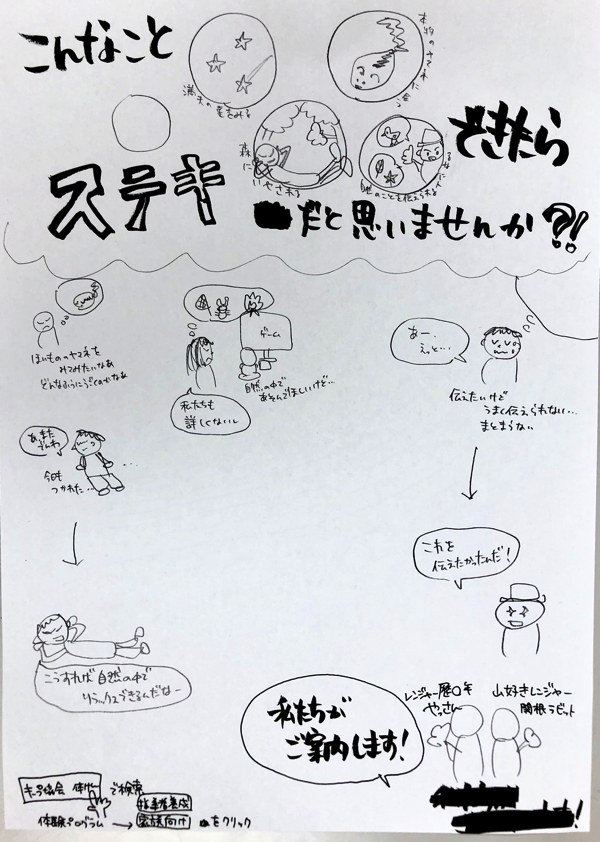 こんなこと
満天の星をみる
本物のヤマネに
森に
いやされる
できたら
ステキ
だと思いませんか?!
ほんもののヤマネを
みてみたいなあ
どんなふうにうごくのかなあ
ゲーム
自然の中で
あそんでほしいけど…
私たちも
詳しくないし
あー、
えっと…
伝えたいけど
うまく伝えられない…
まとまらない
あ、また
今日も
つかれた…
これを
伝えたかったんだ!
こうすれば自然の中で
リラックスできるんだなー
私たちが
ご案内します!
レンジャー歴〇年
やっさん
山好きレンジャー
関根ラビット
で検索
体験プログラム
→
指導者養成
家族向け
をクリック